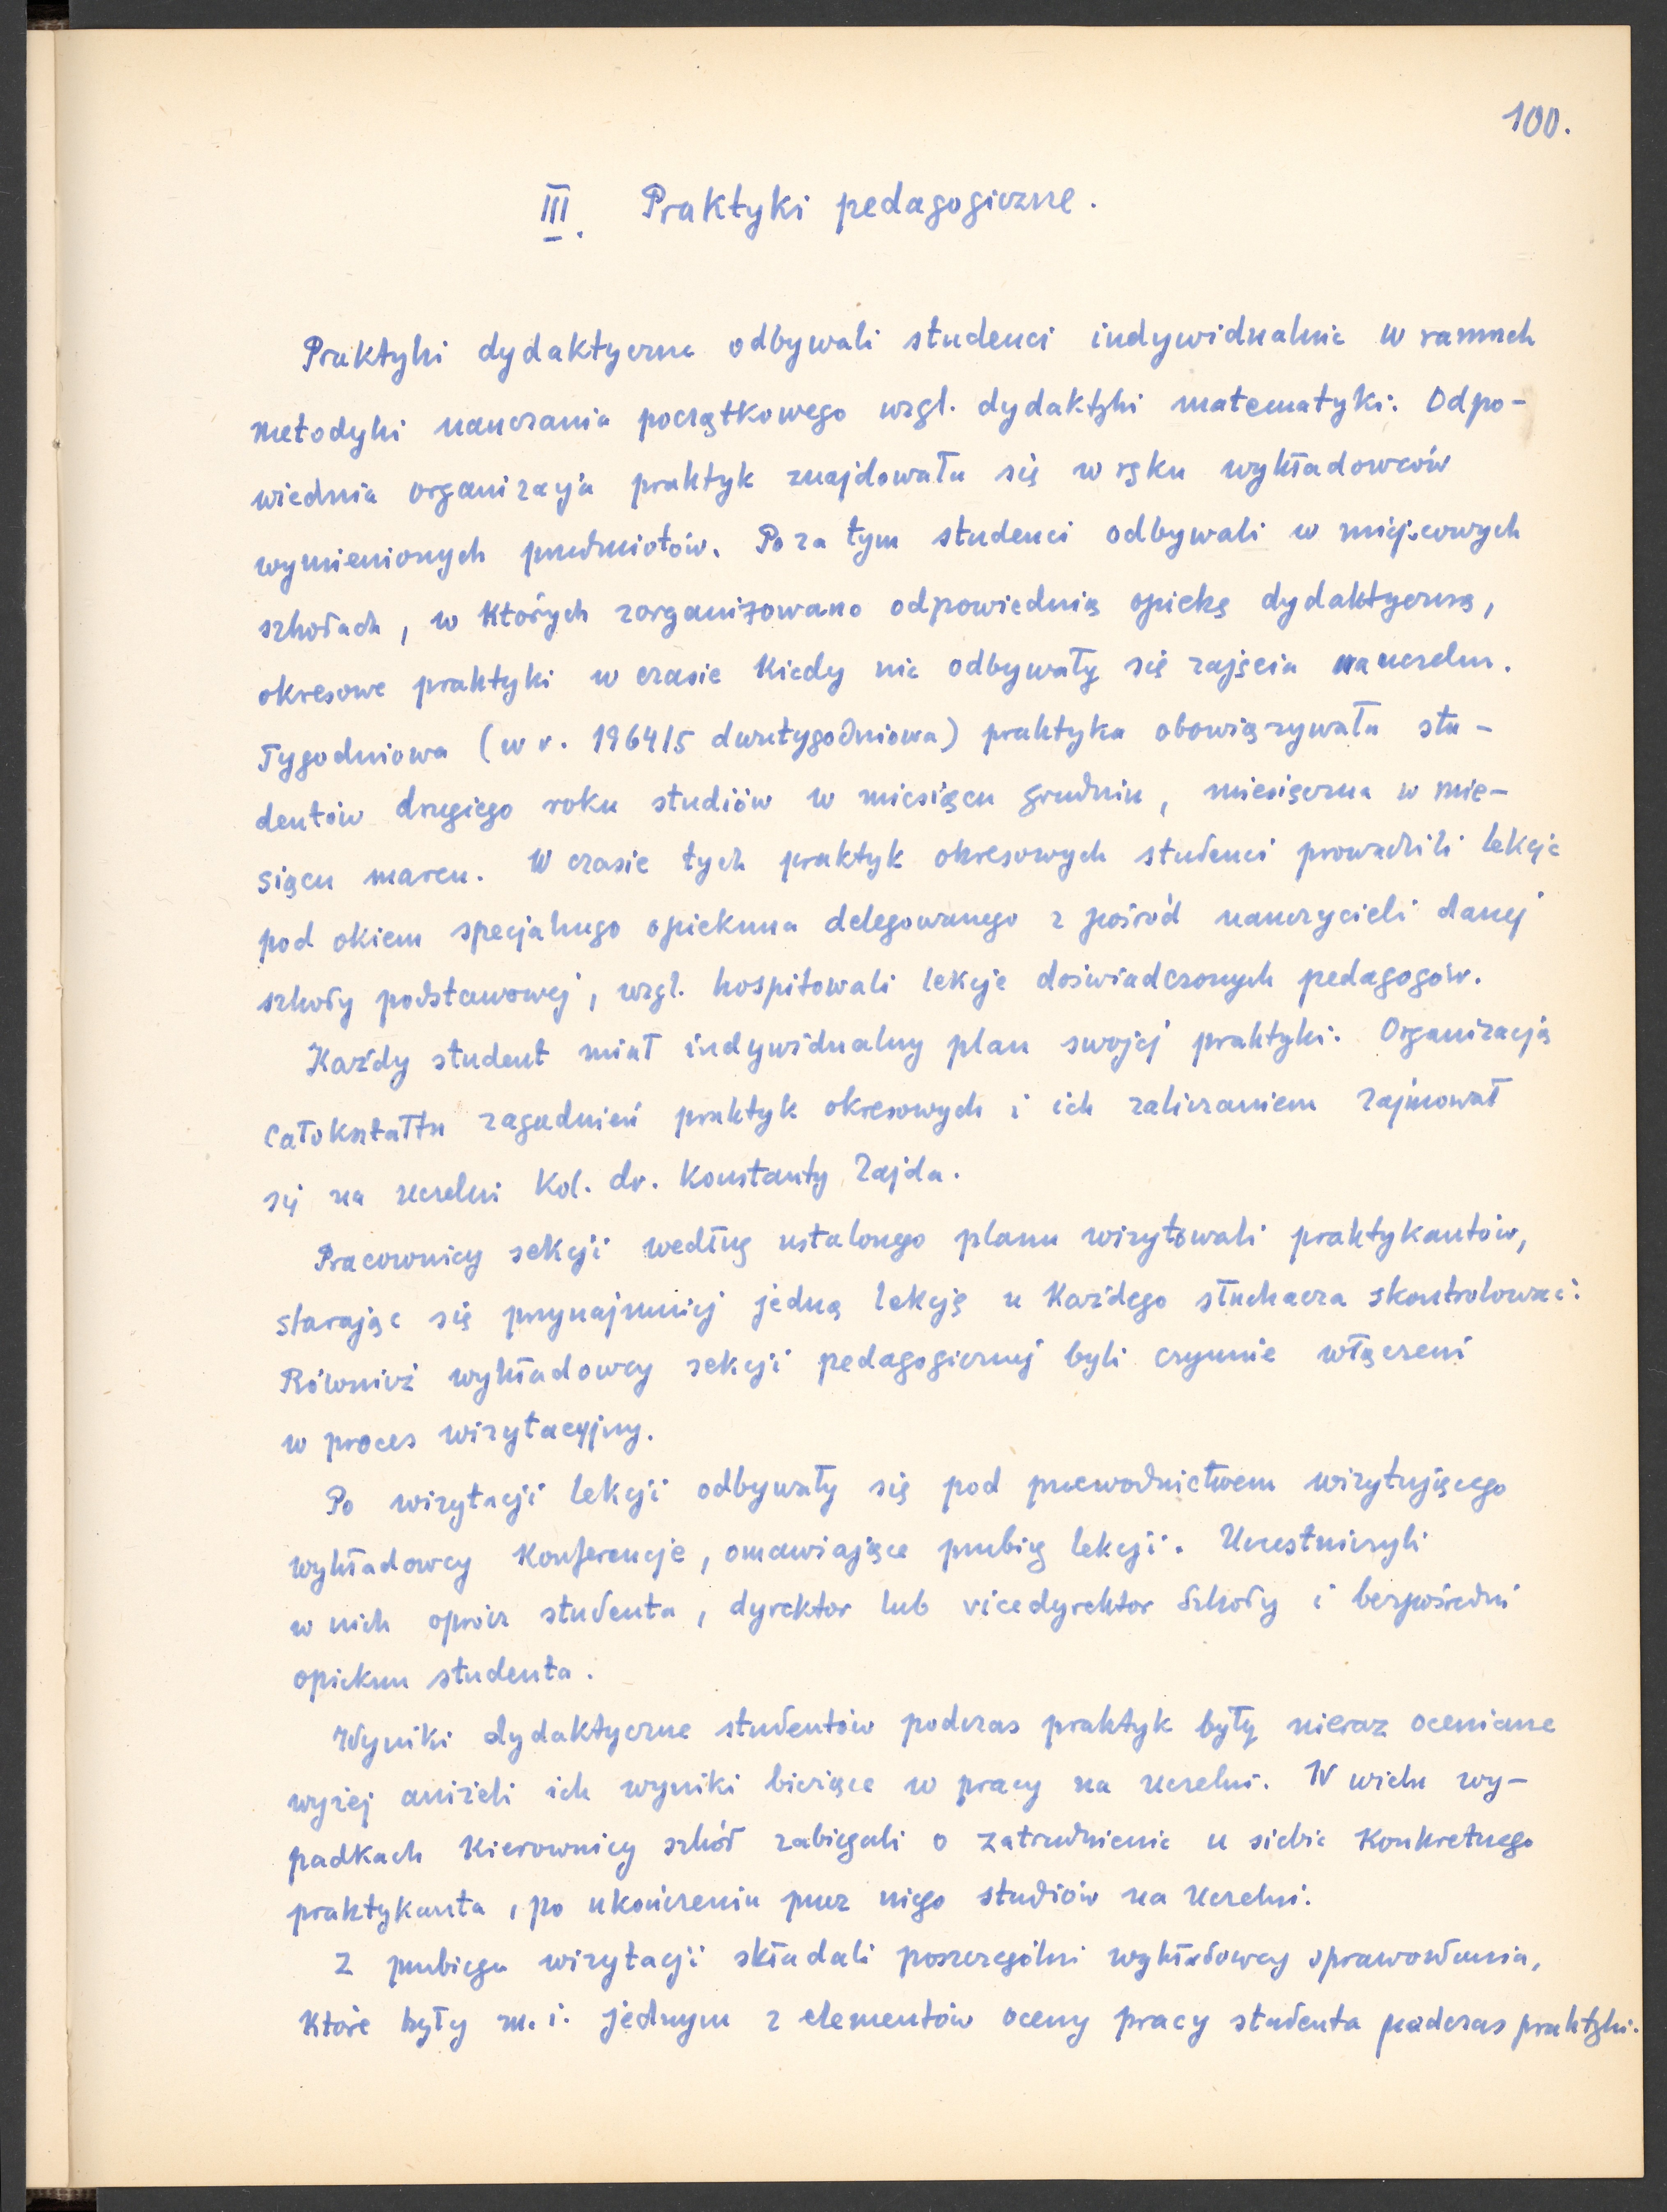 100.
III. Praktyki pedagogiczne.
Praktyki dydaktyczne odbywali studenci indywidualnie w ramach
metodyki nauczania początkowego wzgl. dydaktyki matematyki. Odpo-
wiednia organizacja praktyk znajdowała się w ręku wykładowców
wymienionych przedmiotów. Poza tym studenci odbywali w miejscowych
szkołach, w których zorganizowano odpowiednią opiekę dydaktyczną,
okresowe praktyki w czasie kiedy nie odbywały się zajęcia na uczelni.
Tygodniowa (w r. 1964/5 dwutygodniowa) praktyka obowiązywała stu-
dentów drugiego roku studiów w miesiącu grudniu, miesięczna w mie-
siącu marcu. W czasie tych praktyk okresowych studenci prowadzili lekcje
pod okiem specjalnego opiekuna delegowanego z pośród nauczycieli danej
szkoły podstawowej, wzgl. hospitowali lekcje doświadczonych pedagogów.
Każdy student miał indywidualny plan swojej praktyki. Organizacją
całokształtu zagadnień praktyk okresowych i ich zaliczaniem zajmował
się na uczelni Kol. dr. Konstanty Zajda.
Pracownicy sekcji według ustalonego planu wizytowali praktykantów,
starając się przynajmniej jedną lekcję u każdego słuchacza skontrolować.
Również wykładowcy sekcji pedagogicznej byli czynnie włączeni
w proces wizytacyjny.
Po wizytacji lekcji odbywały się pod przewodnictwem wizytującego
wykładowcy konferencje, omawiające przebieg lekcji. Uczestniczyli
w nich oprócz studenta, dyrektor lub vicedyrektor Szkoły i bezpośredni
opiekun studenta.
Wyniki dydaktyczne studentów podczas praktyk były nieraz oceniane
wyżej aniżeli ich wyniki bieżące w pracy na uczelni. W wielu wy-
padkach kierownicy szkół zabiegali o zatrudnienie u siebie konkretnego
praktykanta, po ukończeniu przez niego studiów na Uczelni.
Z przebiegu wizytacji składali poszczególni wykładowcy sprawozdania,
które były m. i. jednym z elementów oceny pracy studenta podczas praktyki.